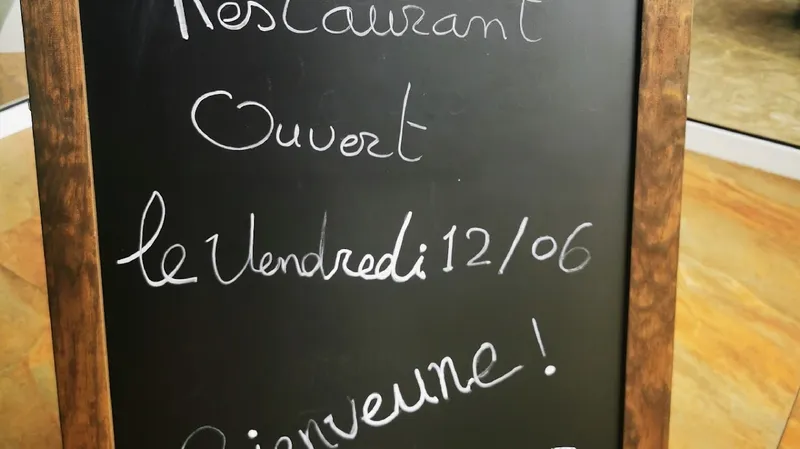 Restaurant
Ouvert
le Vendredi 12/06
Bienvenue !